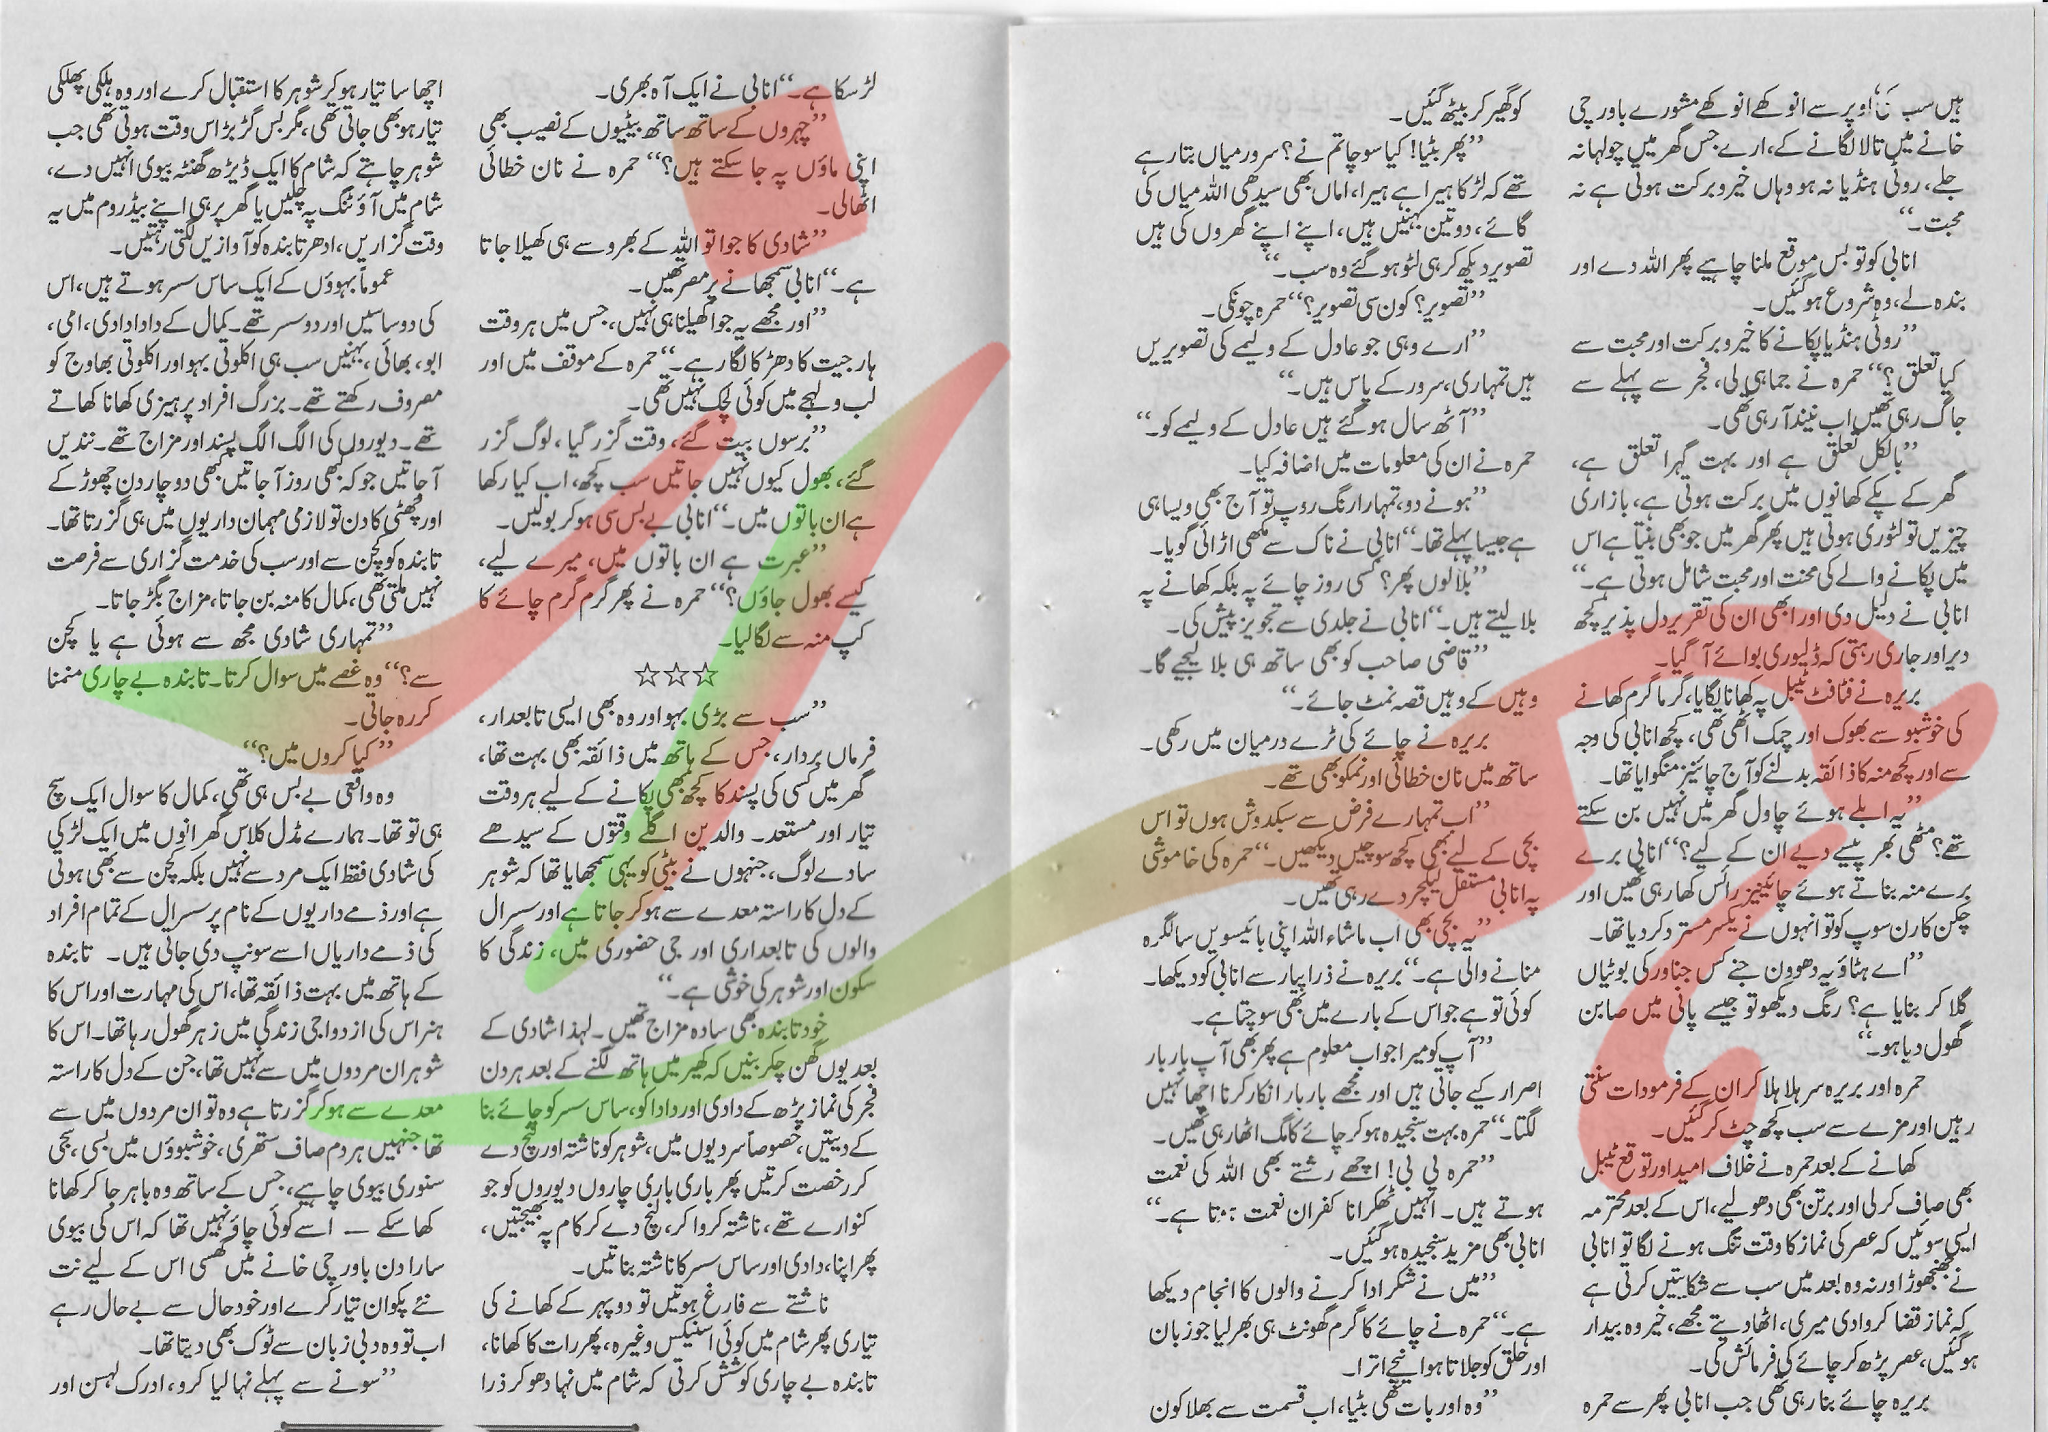 ہیں سب اوپر سے انوکھے انوکھے مشورے باورچی
خانے میں تالا لگانے کے، ارے جس گھر میں چولہا نہ
جلے، روٹی ہنڈیا نہ ہو وہاں خیر و برکت ہوتی ہے نہ
محبت۔‘‘
انابی کو تو بس موقع ملنا چاہیے پھر اللہ دے اور
بندہ لے، وہ شروع ہو گئیں۔
’’روٹی ہنڈیا پکانے کا خیر و برکت اور محبت سے
کیا تعلق؟‘‘ حمرہ نے جماہی لی، فجر سے پہلے سے
جاگ رہی تھیں اب نیند آ رہی تھی۔
’’بالکل تعلق ہے اور بہت گہرا تعلق ہے،
گھر کے پکے کھانوں میں برکت ہوتی ہے، بازاری
چیزیں تو لٹوری ہوتی ہیں پھر گھر میں جو بھی بنتا ہے اس
میں پکانے والے کی محنت اور محبت شامل ہوتی ہے۔‘‘
انابی نے دلیل دی اور ابھی ان کی تقریر دل پذیر کچھ
دیر اور جاری رہتی کہ ڈلیوری بوائے آ گیا۔
بریرہ نے فٹافٹ ٹیبل پہ کھانا لگایا، گرما گرم کھانے
کی خوشبو سے بھوک اور چمک اٹھی تھی، کچھ انابی کی وجہ
سے اور کچھ منہ کا ذائقہ بدلنے کو آج چائنیز منگوایا تھا۔
’’یہ ابلے ہوئے چاول گھر میں نہیں بن سکتے
تھے؟ مٹھی بھر پیسے دیے ان کے لیے؟‘‘ انابی برے
برے منہ بناتے ہوئے چائنیز رائس کھا رہی تھیں اور
چکن کارن سوپ کو تو انہوں نے یکسر مسترد کر دیا تھا۔
’’اے ہٹاؤ یہ دھوون جنے کس جناور کی بوٹیاں
گلا کر بنایا ہے؟ رنگ دیکھو تو جیسے پانی میں صابن
گھول دیا ہو۔‘‘
حمرہ اور بریرہ سر ہلا ہلا کر ان کے فرمودات سنتی
رہیں اور مزے سے سب کچھ چٹ کر گئیں۔
کھانے کے بعد حمرہ نے خلاف امید اور توقع ٹیبل
بھی صاف کر لی اور برتن بھی دھو لیے، اس کے بعد محترمہ
ایسی سوئیں کہ عصر کی نماز کا وقت تنگ ہونے لگا تو انابی
نے جھنجھوڑا ورنہ وہ بعد میں سب سے شکایتیں کرتی ہے
کہ نماز قضا کروا دی میری، اٹھا دیتے مجھے، خیر وہ بیدار
ہو گئیں، عصر پڑھ کر چائے کی فرمائش کی۔
بریرہ چائے بنا رہی تھی جب انابی پھر سے حمرہ
کو گھیر کر بیٹھ گئیں۔
’’پھر بٹیا! کیا سوچا تم نے؟ سرور میاں بتا رہے
تھے کہ لڑکا ہیرا ہے ہیرا، اماں بھی سیدھی اللہ میاں کی
گائے، دو تین بہنیں ہیں، اپنے اپنے گھروں کی ہیں
تصویر دیکھ کر ہی لٹو ہو گئے وہ سب۔‘‘
’’تصویر؟ کون سی تصویر؟‘‘ حمرہ چونکی۔
’’ارے وہی جو عادل کے ولیمے کی تصویریں
ہیں تمہاری، سرور کے پاس ہیں۔‘‘
’’آٹھ سال ہو گئے ہیں عادل کے ولیمے کو۔‘‘
حمرہ نے ان کی معلومات میں اضافہ کیا۔
’’ہونے دو، تمہارا رنگ روپ تو آج بھی ویسا ہی
ہے جیسا پہلے تھا۔‘‘ انابی نے ناک سے مکھی اڑائی گویا۔
’’بلا لوں پھر؟ کسی روز چائے پہ بلکہ کھانے پہ
بلا لیتے ہیں۔‘‘ انابی نے جلدی سے تجویز پیش کی۔
’’قاضی صاحب کو بھی ساتھ ہی بلا لیجیے گا۔
وہیں کے وہیں قصہ نمٹ جائے۔‘‘
بریرہ نے چائے کی ٹرے درمیان میں رکھی۔
ساتھ میں نان خطائی اور نمکو بھی تھے۔
’’اب تمہارے فرض سے سبکدوش ہوں تو اس
بچی کے لیے بھی کچھ سوچیں دیکھیں۔‘‘ حمرہ کی خاموشی
پہ انابی مستقل لیکچر دے رہی تھیں۔
’’یہ بچی بھی اب ماشاء اللہ اپنی بائیسویں سالگرہ
منانے والی ہے۔‘‘ بریرہ نے ذرا پیار سے انابی کو دیکھا۔
کوئی تو ہے جو اس کے بارے میں بھی سوچتا ہے۔
’’آپ کو میرا جواب معلوم ہے پھر بھی آپ بار بار
اصرار کیے جاتی ہیں اور مجھے بار بار انکار کرنا اچھا نہیں
لگتا۔‘‘ حمرہ بہت سنجیدہ ہو کر چائے کا مگ اٹھا رہی تھیں۔
’’حمرہ بی بی! اچھے رشتے بھی اللہ کی نعمت
ہوتے ہیں۔ انہیں ٹھکرانا کفران نعمت ہوتا ہے۔‘‘
انابی بھی مزید سنجیدہ ہو گئیں۔
’’میں نے شکر ادا کرنے والوں کا انجام دیکھا
ہے۔‘‘ حمرہ نے چائے کا گرم گھونٹ ہی بھر لیا جو زبان
اور حلق کو جلاتا ہوا نیچے اترا۔
’’وہ اور بات تھی بٹیا، اب قسمت سے بھلا کون
لڑ سکا ہے۔‘‘ انابی نے ایک آہ بھری۔
’’چہروں کے ساتھ ساتھ بیٹیوں کے نصیب بھی
اپنی ماؤں پہ جا سکتے ہیں؟‘‘ حمرہ نے نان خطائی
اٹھا لی۔
’’شادی کا جوا تو اللہ کے بھروسے ہی کھیلا جاتا
ہے۔‘‘ انابی سمجھانے پر مصر تھیں۔
’’اور مجھے یہ جوا کھیلنا ہی نہیں، جس میں ہر وقت
ہار جیت کا دھڑکا لگا رہے۔‘‘ حمرہ کے موقف میں اور
لب و لہجے میں کوئی لچک نہیں تھی۔
’’برسوں بیت گئے، وقت گزر گیا، لوگ گزر
گئے، بھول کیوں نہیں جاتیں سب کچھ، اب کیا رکھا
ہے ان باتوں میں۔‘‘ انابی بے بس سی ہو کر بولیں۔
’’عبرت ہے ان باتوں میں، میرے لیے،
کیسے بھول جاؤں؟‘‘ حمرہ نے پھر گرم گرم چائے کا
کپ منہ سے لگا لیا۔
☆☆☆
’’سب سے بڑی بہو اور وہ بھی ایسی تابعدار،
فرماں بردار، جس کے ہاتھ میں ذائقہ بھی بہت تھا،
گھر میں کسی کی پسند کا کچھ بھی پکانے کے لیے ہر وقت
تیار اور مستعد۔ والدین اگلے وقتوں کے سیدھے
سادے لوگ، جنہوں نے بیٹی کو یہی سمجھایا تھا کہ شوہر
کے دل کا راستہ معدے سے ہو کر جاتا ہے اور سسرال
والوں کی تابعداری اور جی حضوری میں، زندگی کا
سکون اور شوہر کی خوشی ہے۔‘‘
خود تابندہ بھی سادہ مزاج تھیں۔ لہٰذا شادی کے
بعد یوں گھن چکر بنیں کہ کھیر میں ہاتھ لگنے کے بعد ہر دن
فجر کی نماز پڑھ کے دادی اور دادا کو، ساس سسر کو چائے بنا
کے دیتیں، خصوصاً سردیوں میں، شوہر کو ناشتہ اور لنچ دے
کر رخصت کرتیں پھر باری باری چاروں دیوروں کو جو
کنوارے تھے، ناشتہ کروا کر، لنچ دے کر کام پہ بھیجتیں،
پھر اپنا، دادی اور ساس سسر کا ناشتہ بناتیں۔
ناشتے سے فارغ ہوتیں تو دوپہر کے کھانے کی
تیاری پھر شام میں کوئی اسنیکس وغیرہ، پھر رات کا کھانا،
تابندہ بے چاری کوشش کرتی کہ شام میں نہا دھو کر ذرا
اچھا سا تیار ہو کر شوہر کا استقبال کرے اور وہ ہلکی پھلکی
تیار ہو بھی جاتی تھی، مگر بس گڑبڑ اس وقت ہوتی تھی جب
شوہر چاہتے کہ شام کا ایک ڈیڑھ گھنٹہ بیوی انہیں دے،
شام میں آؤٹنگ پہ چلیں یا گھر پر ہی اپنے بیڈ روم میں یہ
وقت گزاریں، ادھر تابندہ کو آوازیں لگتی رہتیں۔
عموماً بہوؤں کے ایک ساس سسر ہوتے ہیں، اس
کی دو ساسیں اور دو سسر تھے۔ کمال کے دادا دادی، امی،
ابو، بھائی، بہنیں سب ہی اکلوتی بہو اور اکلوتی بھاوج کو
مصروف رکھتے تھے۔ بزرگ افراد پرہیزی کھانا کھاتے
تھے۔ دیوروں کی الگ الگ پسند اور مزاج تھے۔ نندیں
آ جاتیں جو کہ کبھی روز آ جاتیں کبھی دو چار دن چھوڑ کے
اور چھٹی کا دن تو لازمی مہمان داریوں میں ہی گزرتا تھا۔
تابندہ کو کچن سے اور سب کی خدمت گزاری سے فرصت
نہیں ملتی تھی، کمال کا منہ بن جاتا، مزاج بگڑ جاتا۔
’’تمہاری شادی مجھ سے ہوئی ہے یا کچن
سے؟‘‘ وہ غصے میں سوال کرتا۔ تابندہ بے چاری منمنا
کر رہ جاتی۔
’’کیا کروں میں؟‘‘
وہ واقعی بے بس ہی تھی، کمال کا سوال ایک سچ
ہی تو تھا۔ ہمارے مڈل کلاس گھرانوں میں ایک لڑکی
کی شادی فقط ایک مرد سے نہیں بلکہ کچن سے بھی ہوتی
ہے اور ذمے داریوں کے نام پر سسرال کے تمام افراد
کی ذمے داریاں اسے سونپ دی جاتی ہیں۔ تابندہ
کے ہاتھ میں بہت ذائقہ تھا، اس کی مہارت اور اس کا
ہنر اس کی ازدواجی زندگی میں زہر گھول رہا تھا۔ اس کا
شوہر ان مردوں میں سے نہیں تھا، جن کے دل کا راستہ
معدے سے ہو کر گزرتا ہے وہ تو ان مردوں میں سے
تھا جنہیں ہر دم صاف ستھری، خوشبوؤں میں بسی، سجی
سنوری بیوی چاہیے، جس کے ساتھ وہ باہر جا کر کھانا
کھا سکے — اسے کوئی چاؤ نہیں تھا کہ اس کی بیوی
سارا دن باورچی خانے میں گھسی اس کے لیے نت
نئے پکوان تیار کرے اور خود حال سے بے حال رہے
اب تو وہ دبی زبان سے ٹوک بھی دیتا تھا۔
’’سونے سے پہلے نہا لیا کرو، ادرک لہسن اور